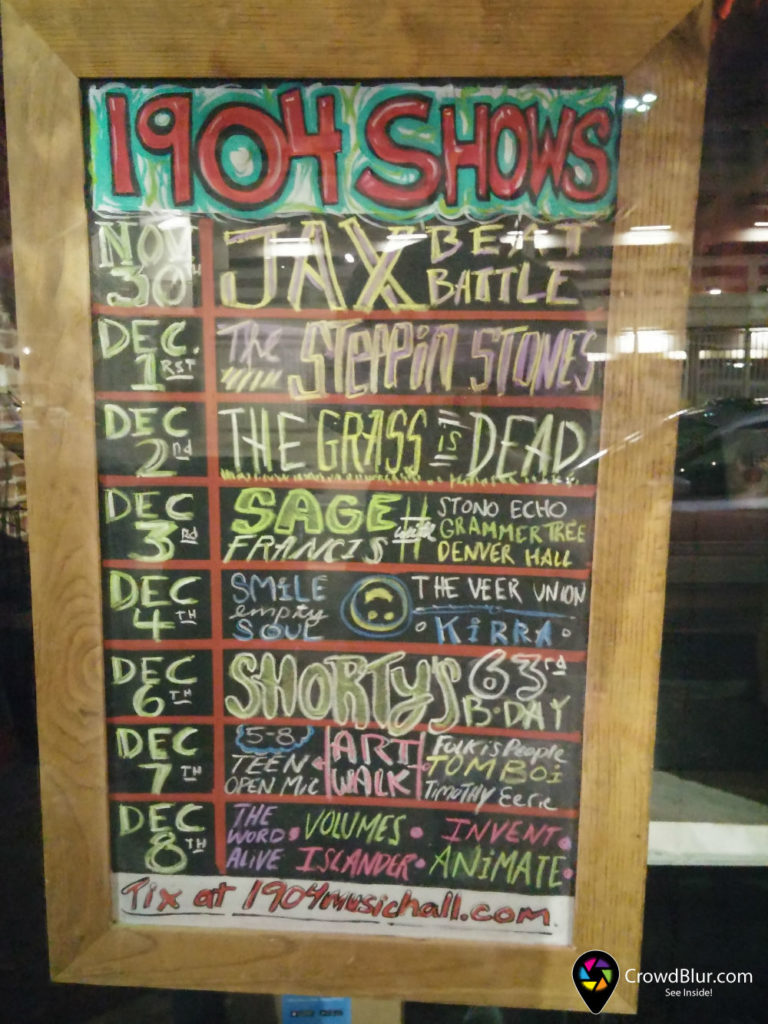 1904 SHOWS
NOV 30TH JAX BEAT BATTLE
DEC. 1RST THE STEPPIN STONES
DEC 2nd THE GRASS IS DEAD
DEC 3RD SAGE FRANCIS with STONO ECHO GRAMMER TREE DENVER HALL
DEC 4TH SMILE empty SOUL THE VEER UNION • KIRRA •
DEC 6TH SHORTY'S 63rd B-DAY
DEC 7TH 5-8 TEEN OPEN MIC ART WALK Folk is People TOMBOi TIMOTHY Eerie
DEC 8TH THE WORD ALIVE • VOLUMES • INVENT • ISLANDER • ANIMATE •
Tix at 1904musichall.com
CrowdBlur.com
See Inside!